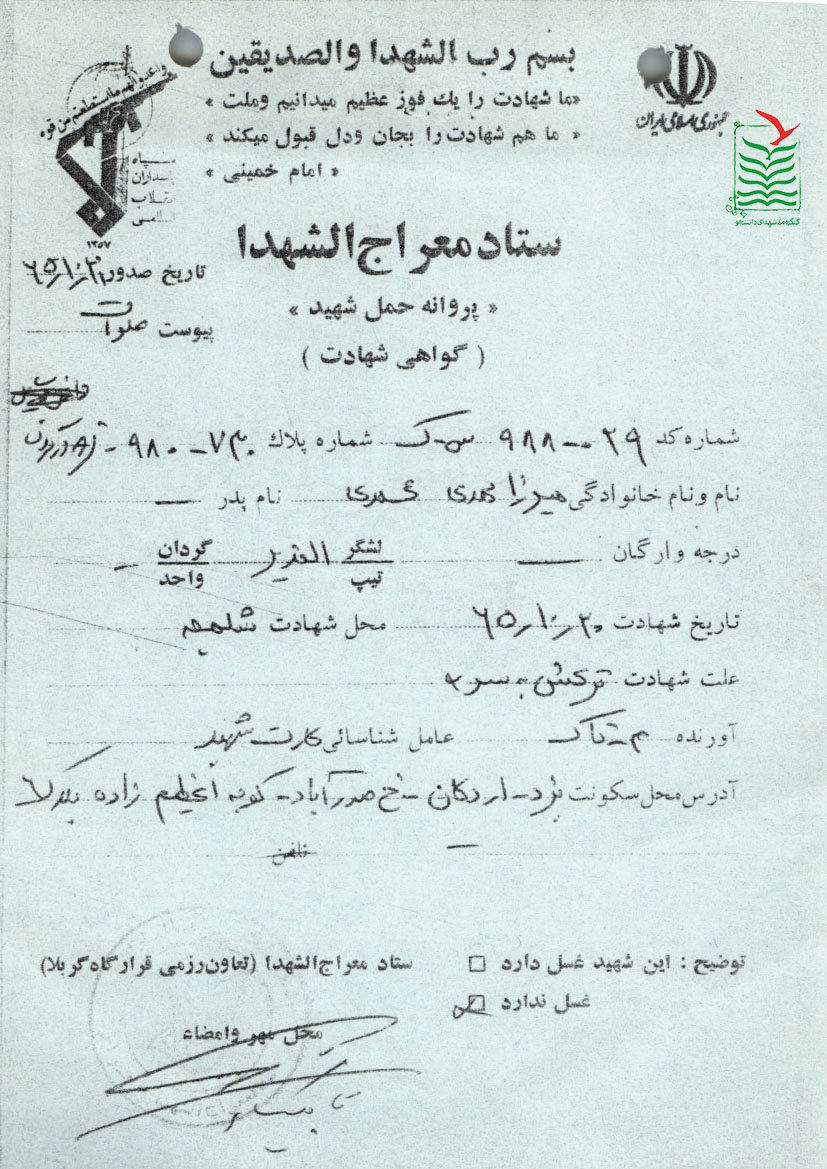 بسم رب الشهدا والصدیقین
«ما شهادت را یك فوز عظیم میدانیم وملت»
« ما هم شهادت را بجان ودل قبول میکند »
« امام خمینی »
جمهوری اسلامی ایران
واعدوا لهم ما استطعتم من قوه
سپاه
پاسداران
انقلاب
اسلامی
۱۳۵۷
کنگره ملی شهدای دانشجو
ستاد معراج الشهدا
تاریخ صدور ۶۵/۱۰/۲۰
« پروانه حمل شهید »
پیوست
( گواهی شهادت )
شماره کد ۹۸۸-۰۰۲۹ شماره پلاك ۹۸۰-۷۳۰
نام ونام خانوادگی میرزا محمدی نام پدر —
درجه وارگان — لشگر تیپ الغدیر گردان واحد -
تاریخ شهادت ۶۵/۱۰/۲۰ محل شهادت شلمچه
علت شهادت ترکش به سر
آورنده عامل شناسائی کارت شهید
آدرس محل سکونت یزد - اردکان - خ صدرآباد - کوچه زاده پلاک
— تلفن
توضیح : این شهید غسل دارد □ ستاد معراج الشهدا (تعاون رزمی قرارگاه کربلا)
غسل ندارد ☑
محل مهر وامضاء